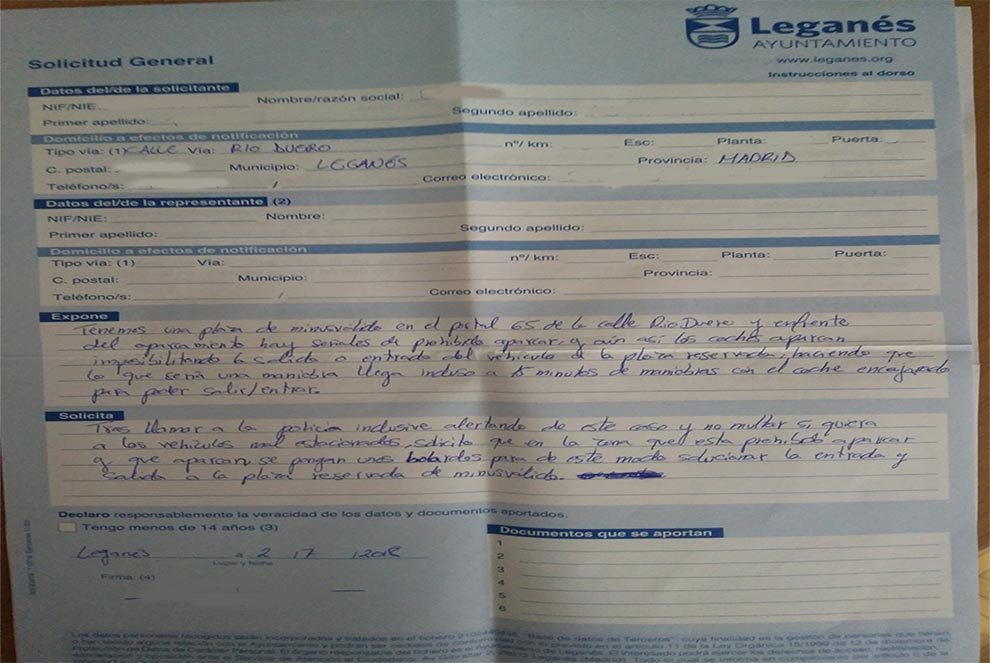 Leganés
AYUNTAMIENTO
www.leganes.org
Solicitud General
Instrucciones al dorso
Datos del/de la solicitante
NIF/NIE: Nombre/razón social:
Primer apellido: Segundo apellido:
Domicilio a efectos de notificación
Tipo vía: (1) CALLE Vía: RIO DUERO nº/ km: Esc: Planta: Puerta:
C. postal: Municipio: LEGANÉS Provincia: MADRID
Teléfono/s: / Correo electrónico:
Datos del/de la representante (2)
NIF/NIE: Nombre:
Primer apellido: Segundo apellido:
Domicilio a efectos de notificación
Tipo vía: (1) Vía: nº/ km: Esc: Planta: Puerta:
C. postal: Municipio: Provincia:
Teléfono/s: / Correo electrónico:
Expone
Tenemos una plaza de minusválido en el portal 65 de la calle Rio Duero y enfrente
del aparcamiento hay señales de prohibido aparcar y aún así los coches aparcan
imposibilitando la salida o entrada del vehículo de la plaza reservada, haciendo que
lo que sería una maniobra llega incluso a 15 minutos de maniobras con el coche encajonado
para poder salir/entrar.
Solicita
Tras llamar a la policia inclusive alertando de este caso y no multar si quiera
a los vehículos mal estacionados, solicito que en la zona que está prohibido aparcar
y que aparcan, se pongan unos bolardos para de este modo solucionar la entrada y
salida a la plaza reservada de minusválido.
Declaro responsablemente la veracidad de los datos y documentos aportados.
Tengo menos de 14 años (3)
Documentos que se aportan
1
2
3
4
5
6
Leganés a 2 / 7 / 2018
Lugar y fecha
Firma: (4)